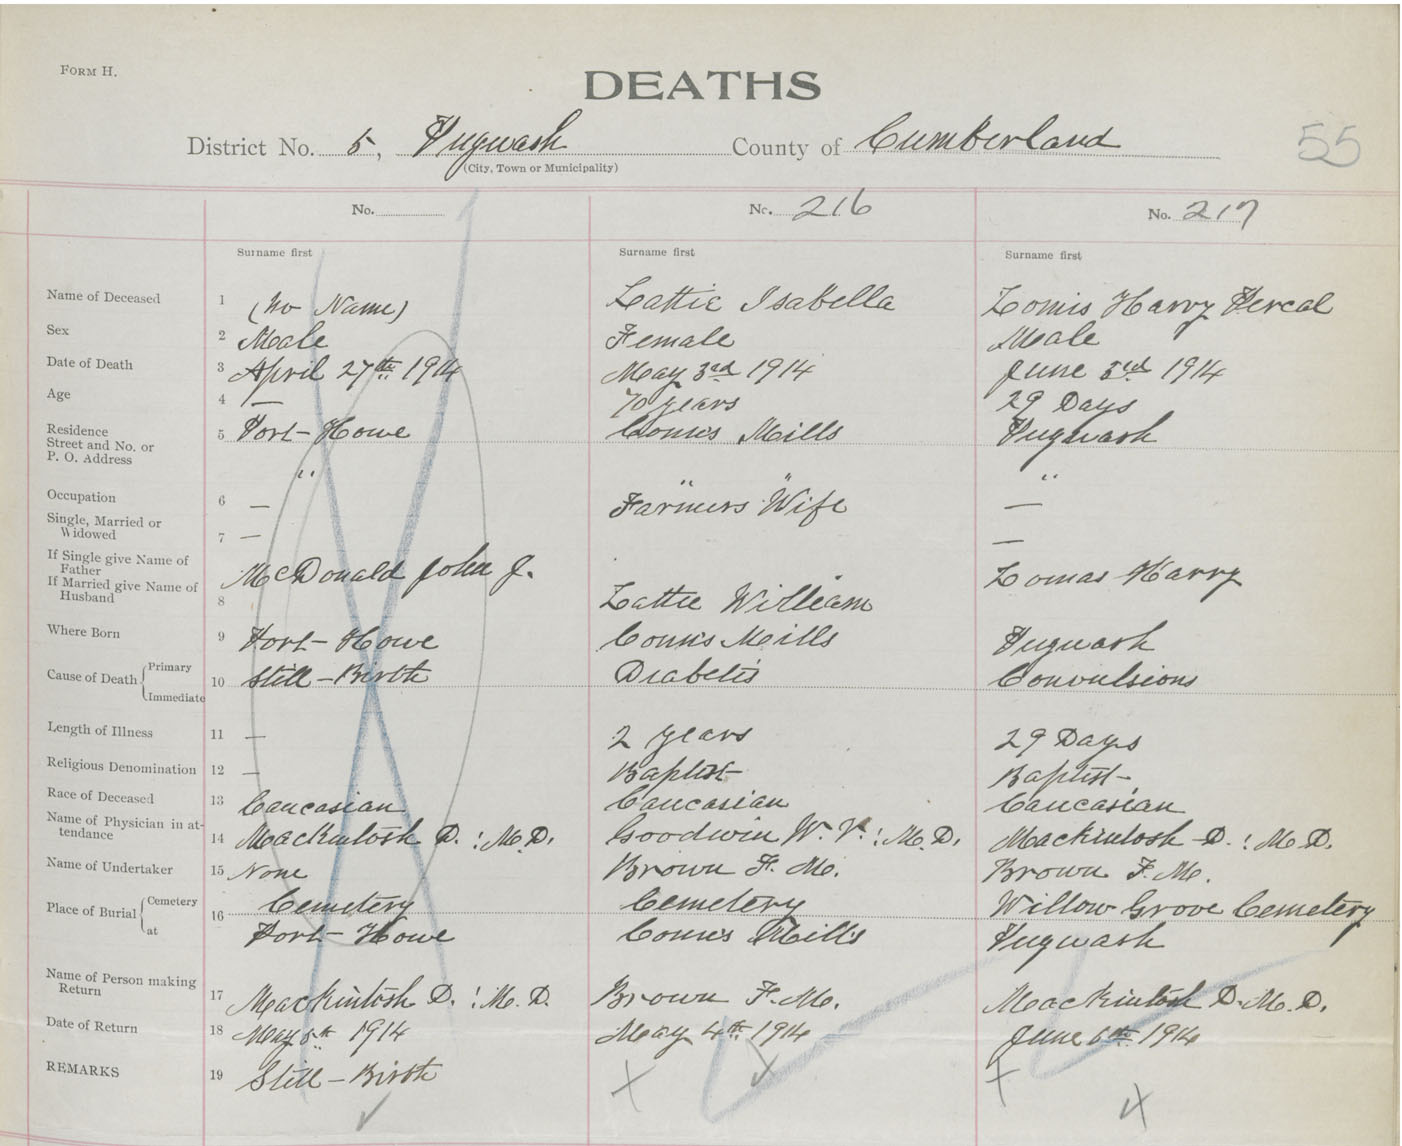 FORM H.
DEATHS
District No. 5, Pugwash County of Cumberland 55
(City, Town or Municipality)
No. No. 216 No. 217
Surname first Surname first Surname first
Name of Deceased 1 (No Name) Lattie Isabella Lomis Harry Percal
Sex 2 Male Female Male
Date of Death 3 April 27th 1914 May 3rd 1914 June 3rd 1914
Age 4 — 70 years 29 Days
Residence
Street and No. or
P. O. Address
5 Port-Howe Conn's Mills Pugwash
" " " "
Occupation 6 — Farmers Wife —
Single, Married or
Widowed
7 — —
If Single give Name of
Father
McDonald John J. Lomas Harry
If Married give Name of
Husband
8 Lattie William
Where Born 9 Port-Howe Conn's Mills Pugwash
Cause of Death { Primary
Immediate
10 Still-Birth Diabetis Convulsions
Length of Illness 11 — 2 years 29 Days
Religious Denomination 12 — Baptist- Baptist-
Race of Deceased 13 Caucasian Caucasian Caucasian
Name of Physician in at-
tendance
14 Mackintosh D. : M.D. Goodwin W. V. : M.D. Mackintosh D. : M.D.
Name of Undertaker 15 None Brown F. M. Brown F. M.
Place of Burial { Cemetery
at
16 Cemetery Cemetery Willow Grove Cemetery
Port-Howe Conn's Mills Pugwash
Name of Person making
Return
17 Mackintosh D. : M.D. Brown F. M. Mackintosh D. M.D.
Date of Return 18 May 5th 1914 May 4th 1914 June 6th 1914
REMARKS 19 Still-Birth